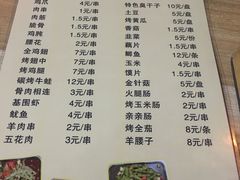 鸡爪 4元/串
肉串 1元/串
肉筋 1.5元/串
脆骨 1.5元/串
鸡肫 1.5元/串
腰花 2元/串
全鸡翅 7元/串
烤翅中 5元/串
烤鸡腿 7元/串
碳烤牛蛙 12元/串
骨肉相连 3元/串
基围虾 3元/串
鱿鱼 4元/串
羊肉串 2元/串
五花肉 3元/串
特色臭干子 10元/盘
土豆 5元/盘
烤黄瓜 5元/盘
香菇 1.5元/串
韭菜 5元/份
藕片 1.5元/串
鲫鱼 12元/条
玉米 4元/串
馍片 1元/串
金针菇 5元/盘
火腿肠 3元/串
烤玉米肠 3元/串
亲亲肠 2元/串
烤全茄 8元/条
羊腰子 8元/串